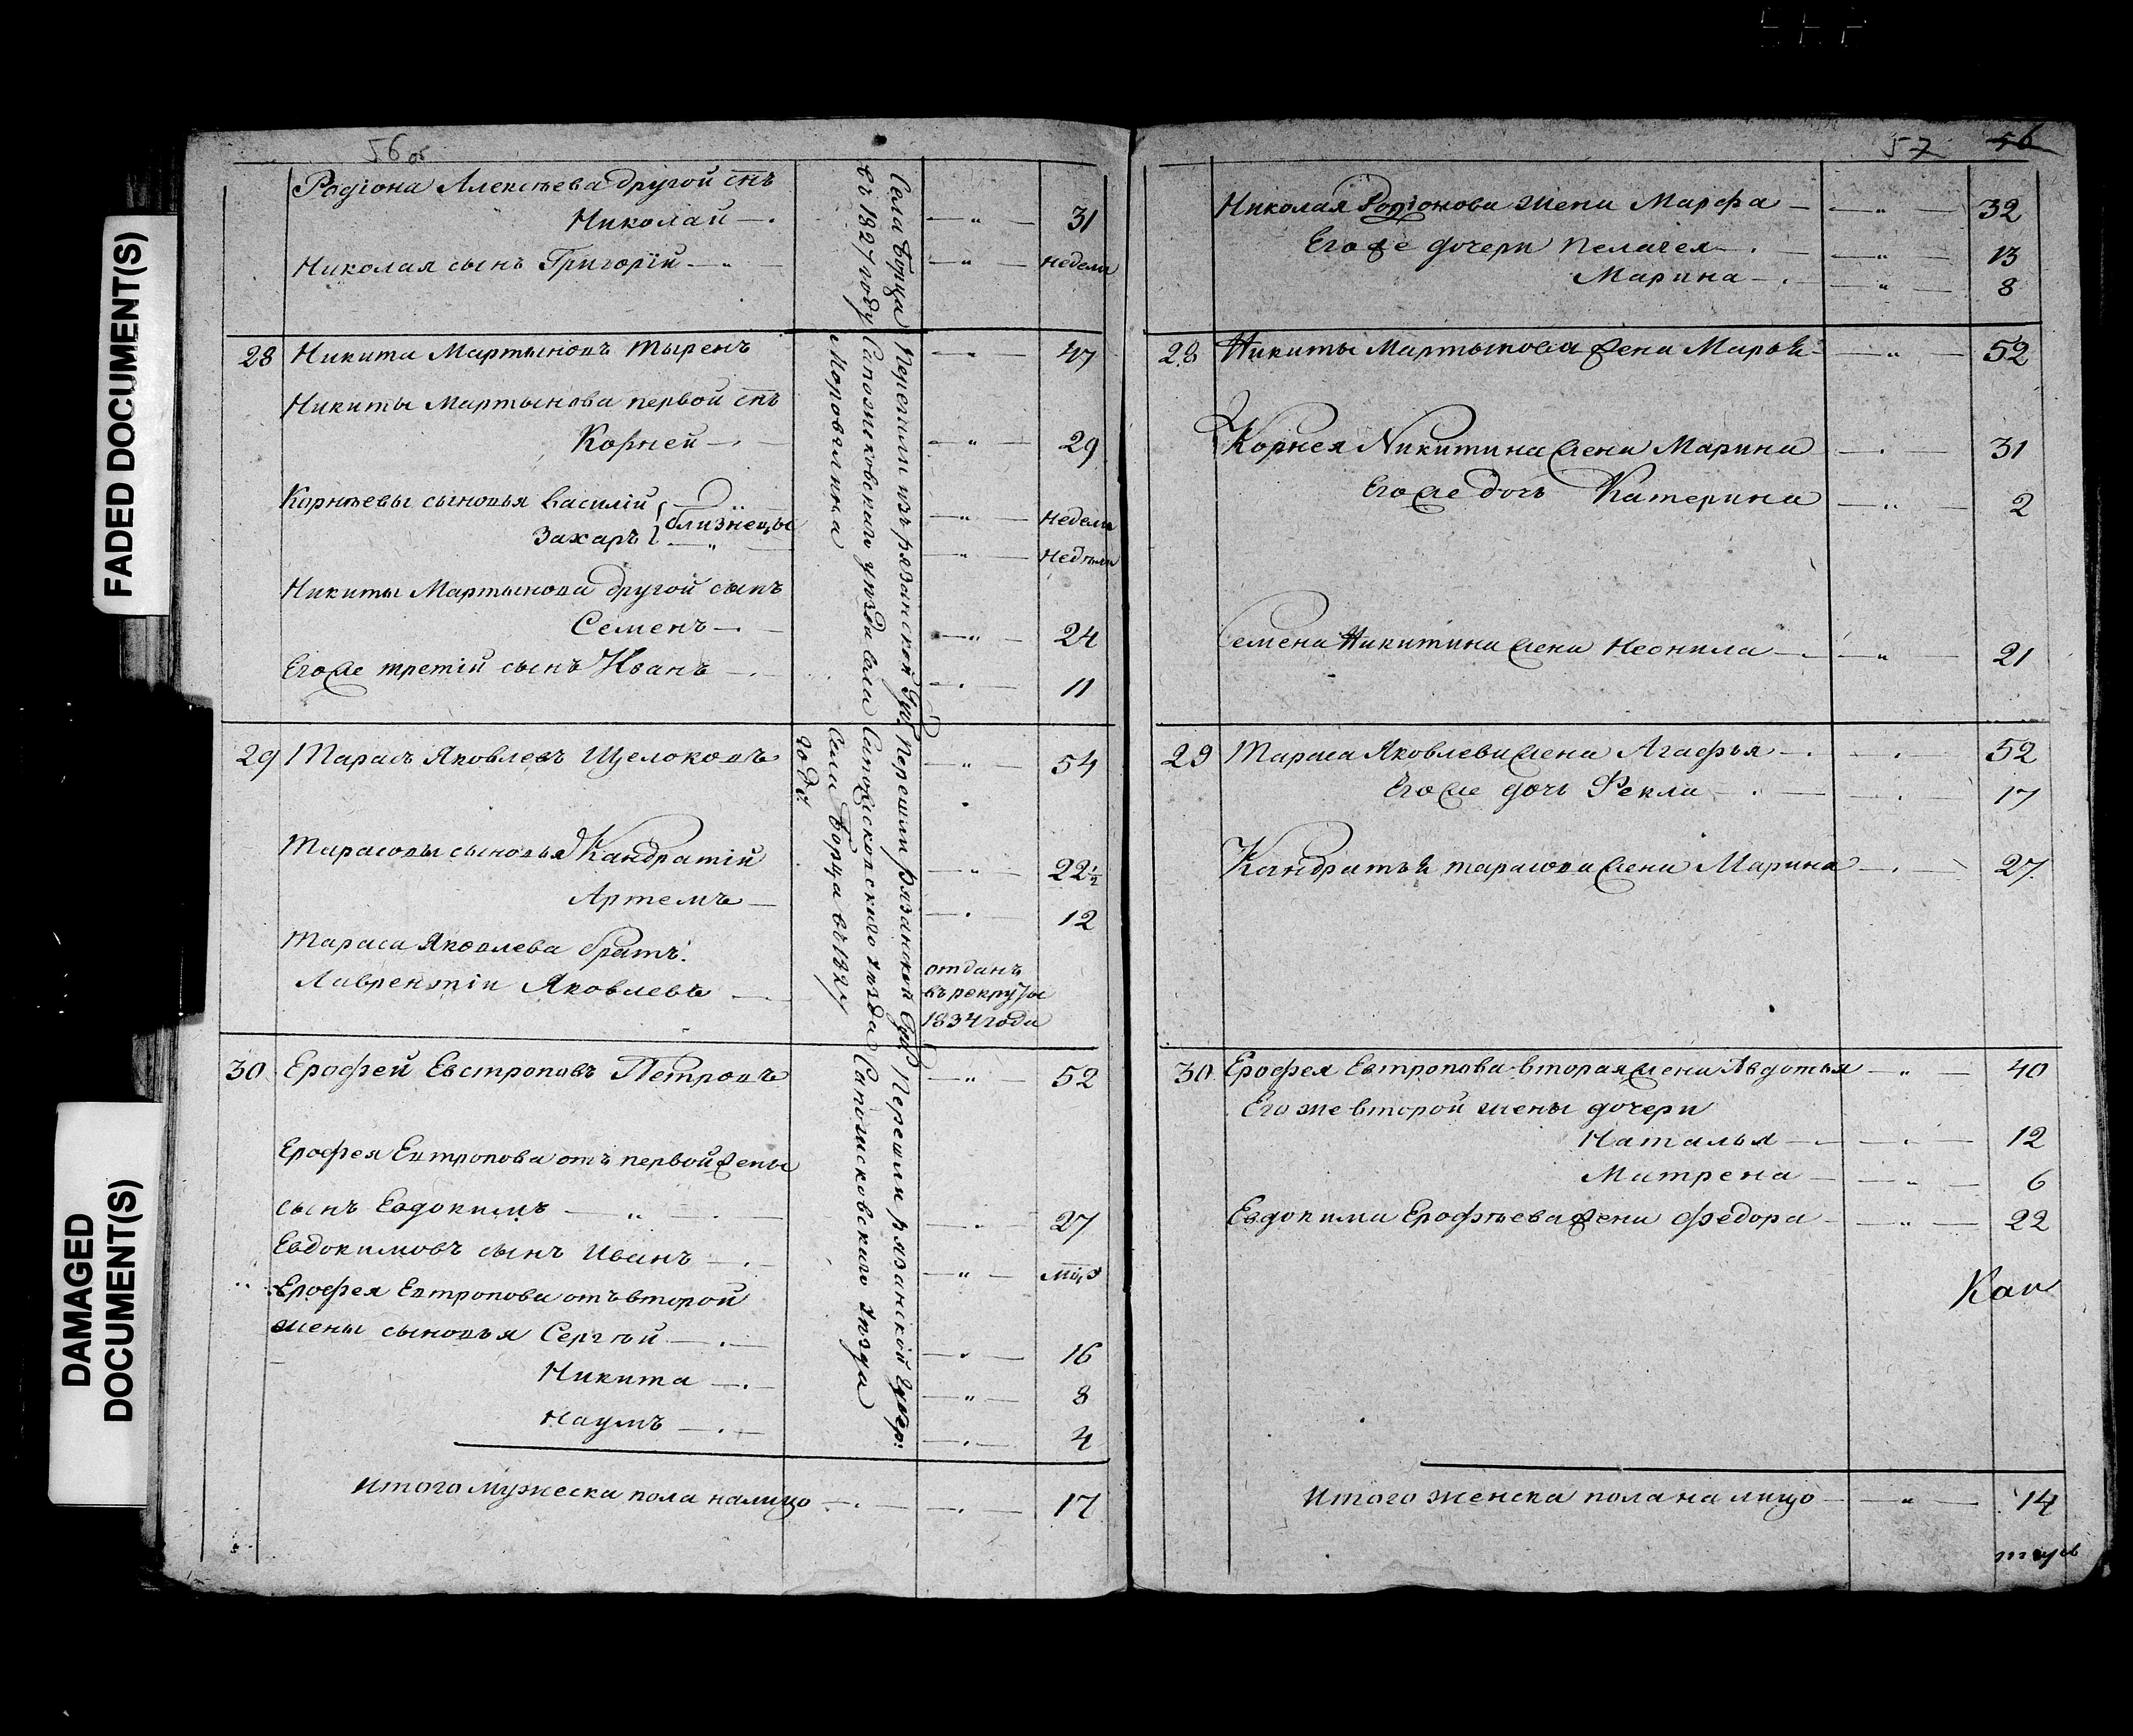 FADED DOCUMENT(S)
DAMAGED
DOCUMENT(S)
56 об
Родiона Алексѣева другой снъ
Николай 31
Николая сынъ Григорiй недели
Села Борца
въ 1827 году
28 Никита Мартыновъ Тыренъ 47
Никиты Мартынова первой снъ
Корней 29
Корнѣевы сыновья Василiй недели
близнецы
Захаръ недѣли
Никиты Мартынова другой сынъ
Семенъ 24
Егоже третiй сынъ Иванъ 11
Перешли изъ рязанской Губ.
Сапожковскаго уѣзда села
29 Тарасъ Яковлевъ Щелоковъ 54
Тарасовы сыновья Кандратiй 22½
Артемъ 12
Тараса Яковлева братъ
Лаврентiй Яковлевъ
отданъ
въ рекруты
1834 года
Перешли рязанской Губ
Сапожсковскаго уѣзда
Села Борца въ 1827
году
30 Ерофей Евстроповъ Петровъ 52
Ерофея Евтропова отъ первой жены
сынъ Евдокимъ 27
Евдокимовъ сынъ Иванъ
Ерофея Евтропова отъ второй
жены сыновья Сергѣй 16
Никита 8
Наумъ 4
Перешли рязанской Губер:
Сапожсковскаго уѣзда
Итого мужеска пола налицо 17
57 56
Николая Родiонова жена Марфа 32
Егоже дочери Пелагея 13
Марина 8
28 Никиты Мартынова жена Марья 52
Корнея Никитина жена Марина 31
Егоже дочь Катерина 2
Семена Никитина жена Неонила 21
29 Тараса Яковлева жена Агафья 52
Егоже дочь Фекла 17
Кандратья тарасова жена Марина 27
30 Ерофея Евтропова вторая жена Авдотья 40
Его же второй жены дочери
Наталья 12
Матрена 6
Евдокима Ерофѣева жена Федора 22
Итого женска пола на лицо 14